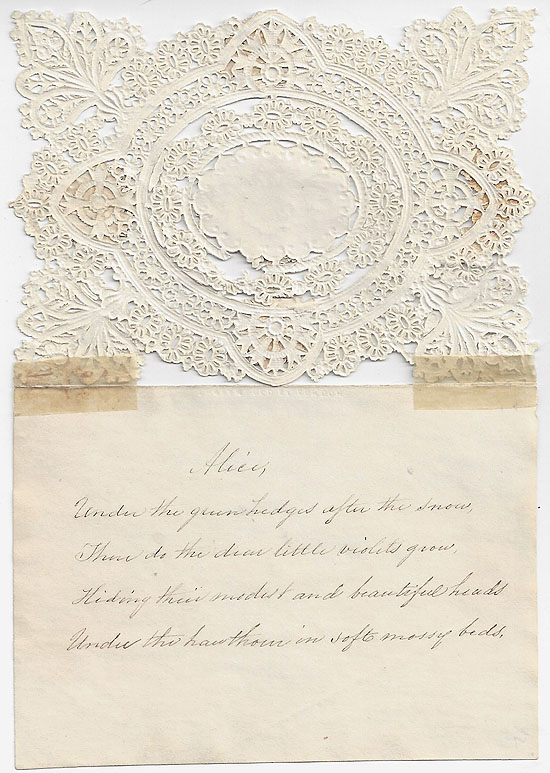 Alice,
Under the green hedges after the snow,
There do the dear little violets grow,
Hiding their modest and beautiful heads
Under the hawthorn in soft mossy beds.